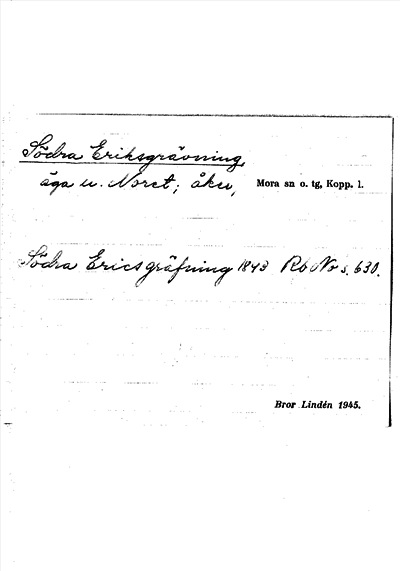 Södra Eriksgrävning,
äga u. Noret; åker, Mora sn o. tg, Kopp. l.
Södra Ericsgräfning 1843 Rb No s. 630.
Bror Lindén 1945.